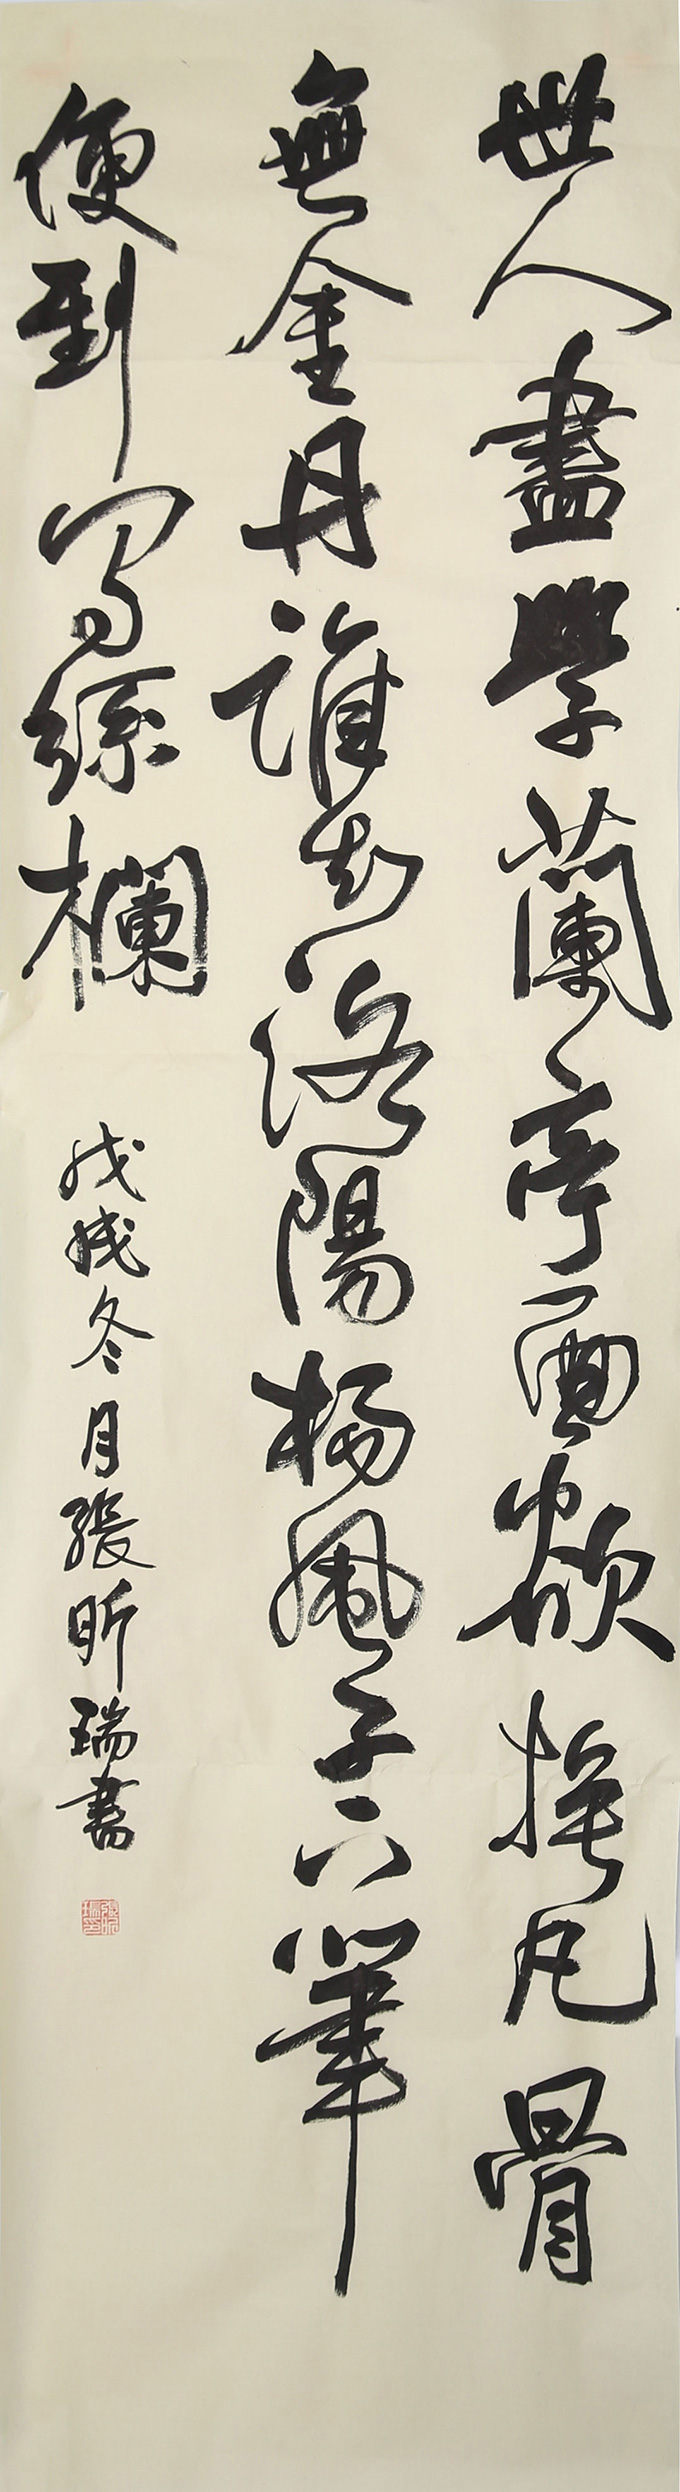 世人盡學蘭亭面欲換凡骨
無金丹誰知洛陽楊風子下筆
便到烏絲欄
戊戌冬月張昕瑞書
張昕瑞印